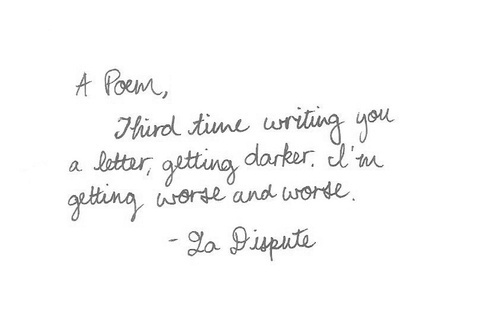 A Poem,
Third time writing you
a letter, getting darker. I'm
getting worse and worse.
- La Dispute